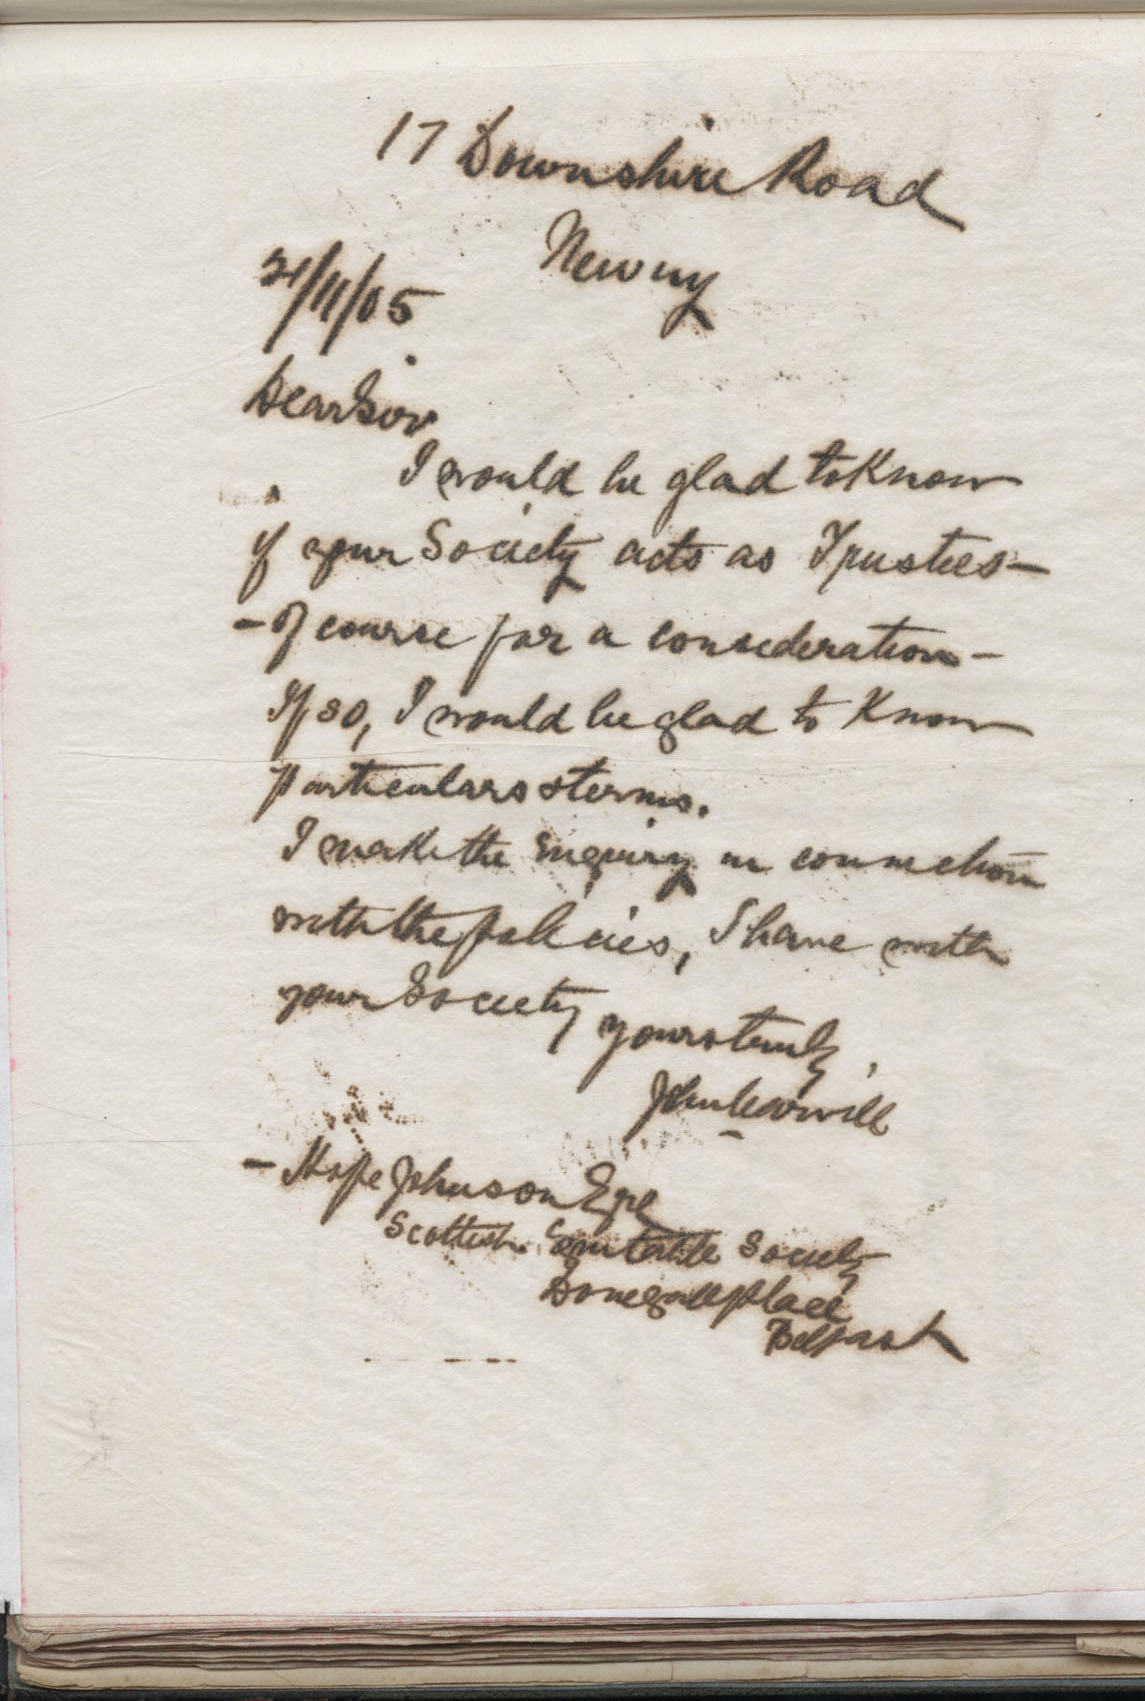 17 Downshire Road
Newry
21/11/05
Dear Sir
I would be glad to Know
if your Society acts as Trustees—
— of course for a consideration —
If so, I would be glad to Know
particulars & terms.
I make the enquiry in connection
with the policies, I have with
your Society
yours truly,
John
— Hope Johnson Esq
Scottish Equitable Society
Donegall place
Belfast